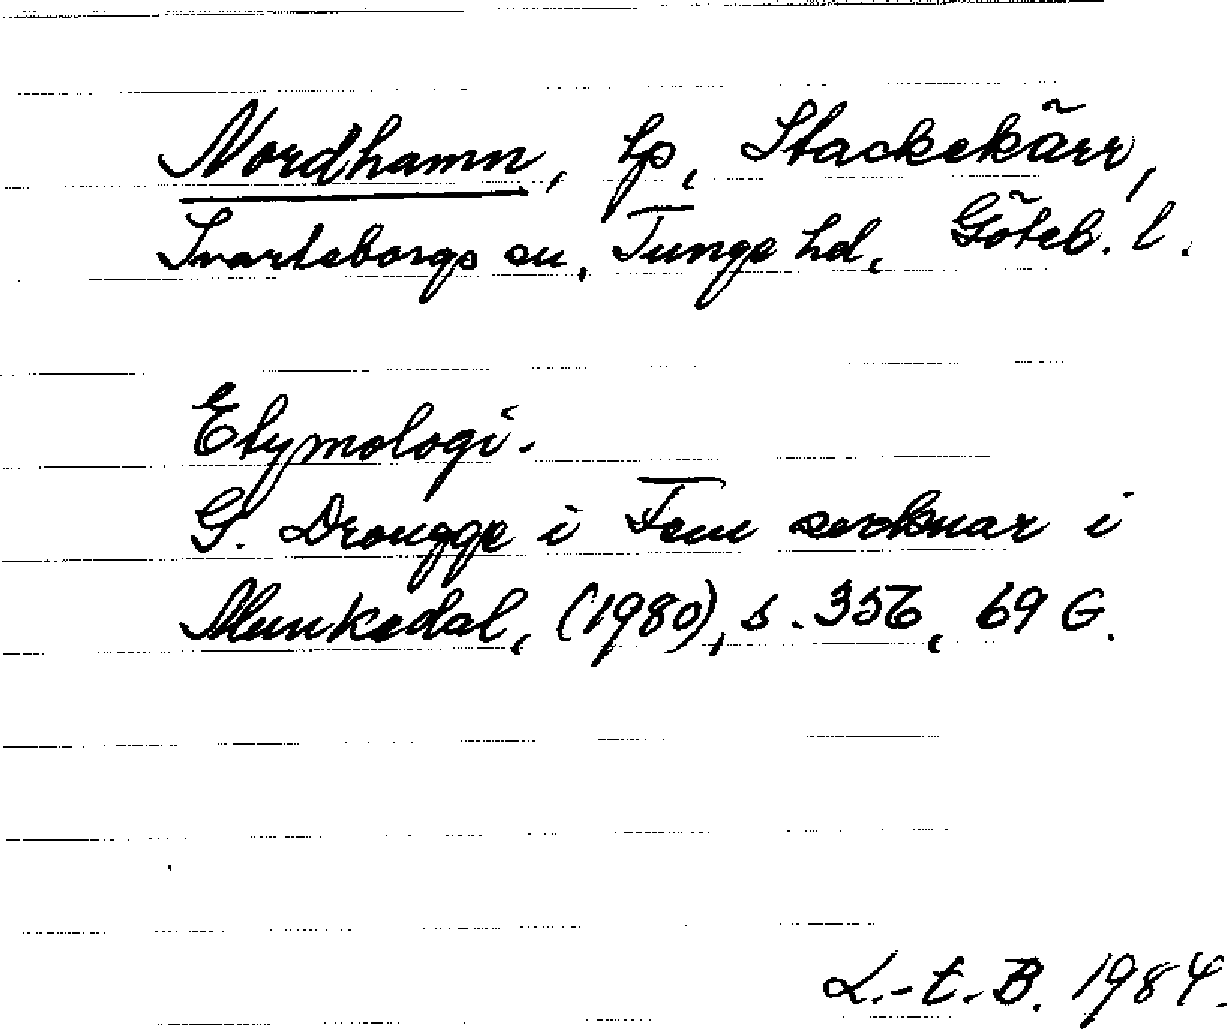 Nordhamn, lp, Stackekärr,
Svarteborgs sn, Tunge hd, Göteb. l.
Etymologi.
G. Drougge i Fem socknar i
Munkedal, (1980), s. 356, 69 G.
L.-t.-B. 1984.